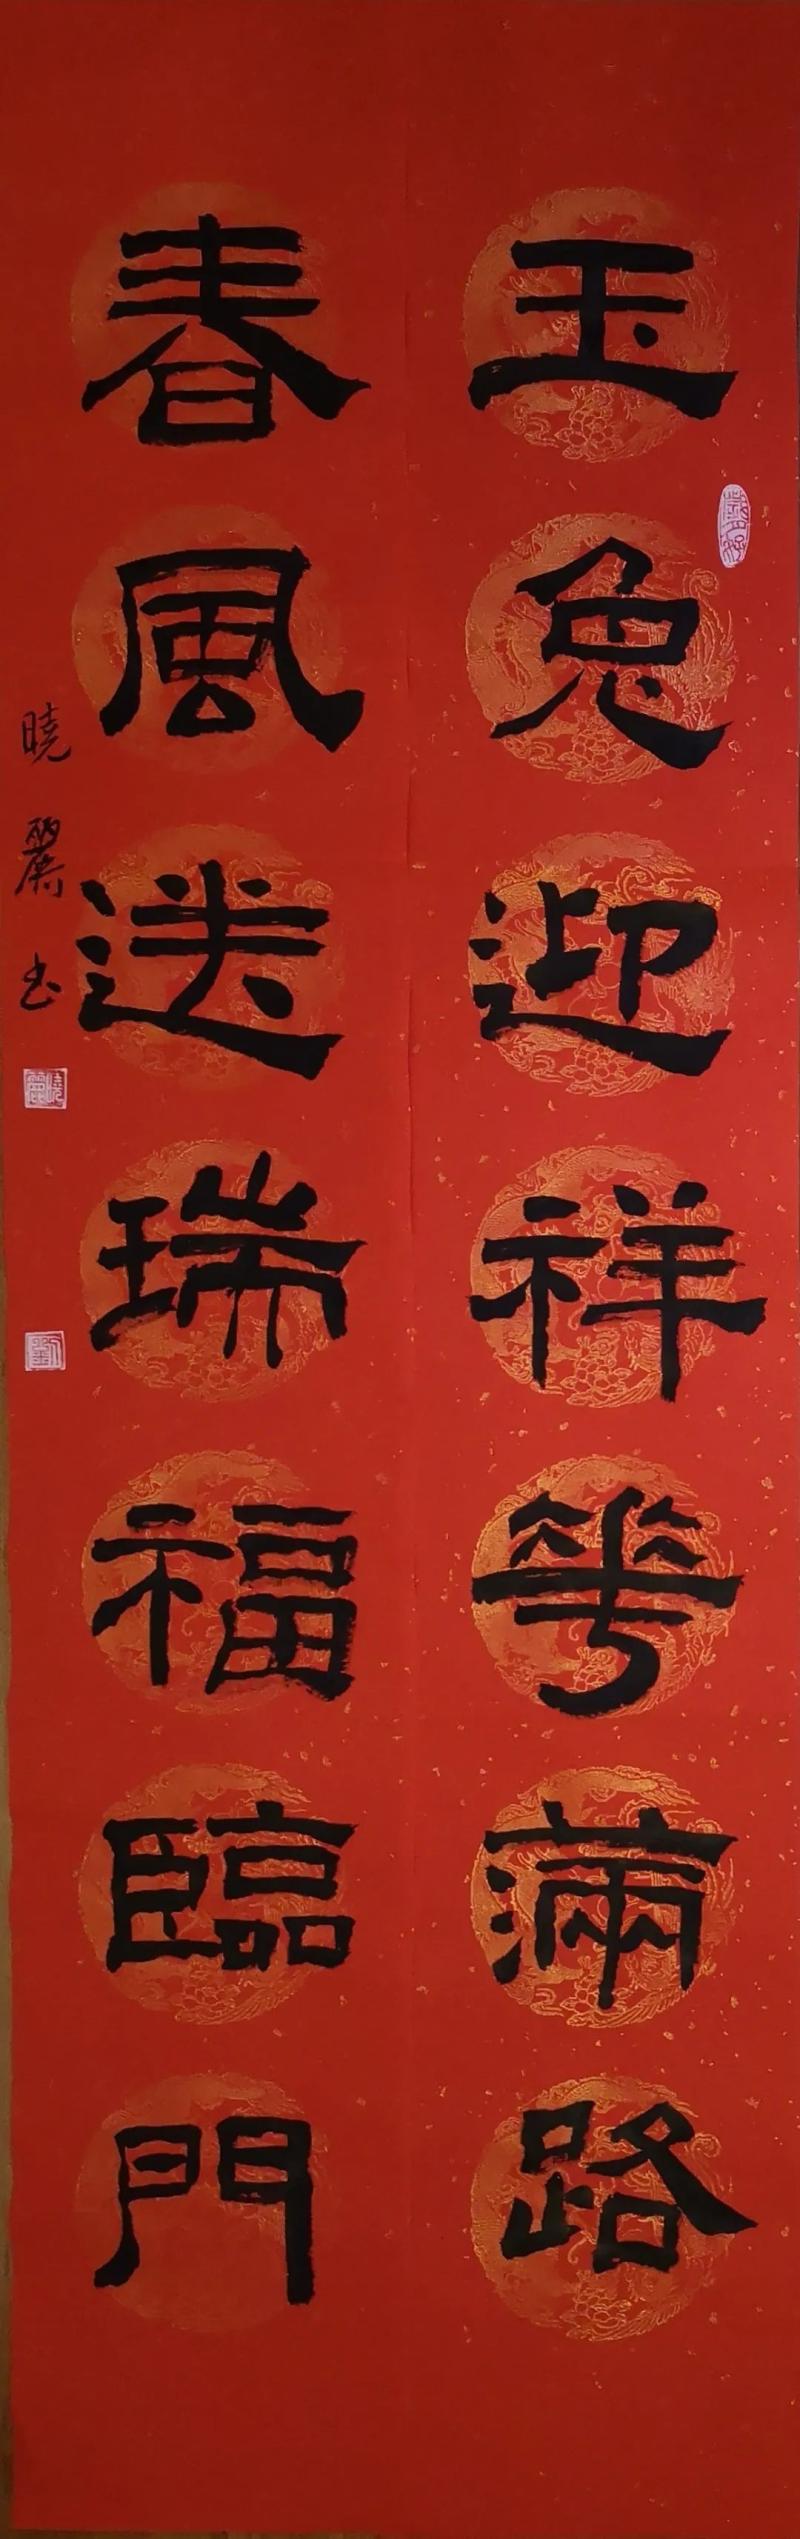 玉兔迎祥華滿路
春風送瑞福臨門
曉麗书